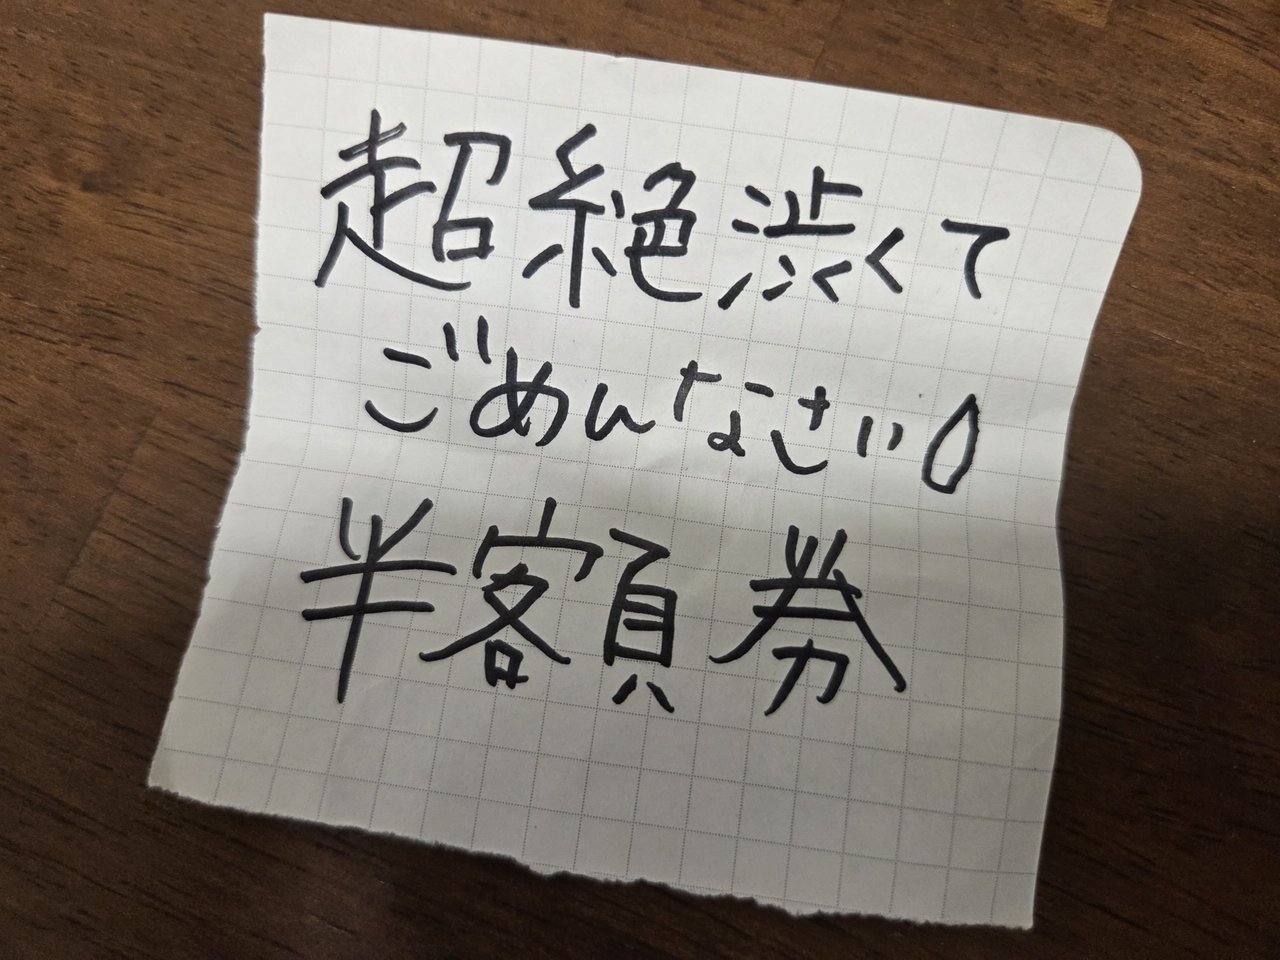 超絶渋くて
ごめんなさい
半額券